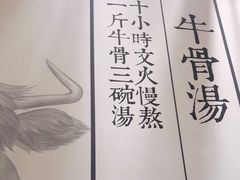 牛骨湯
十小時文火慢熬
一斤牛骨三碗湯